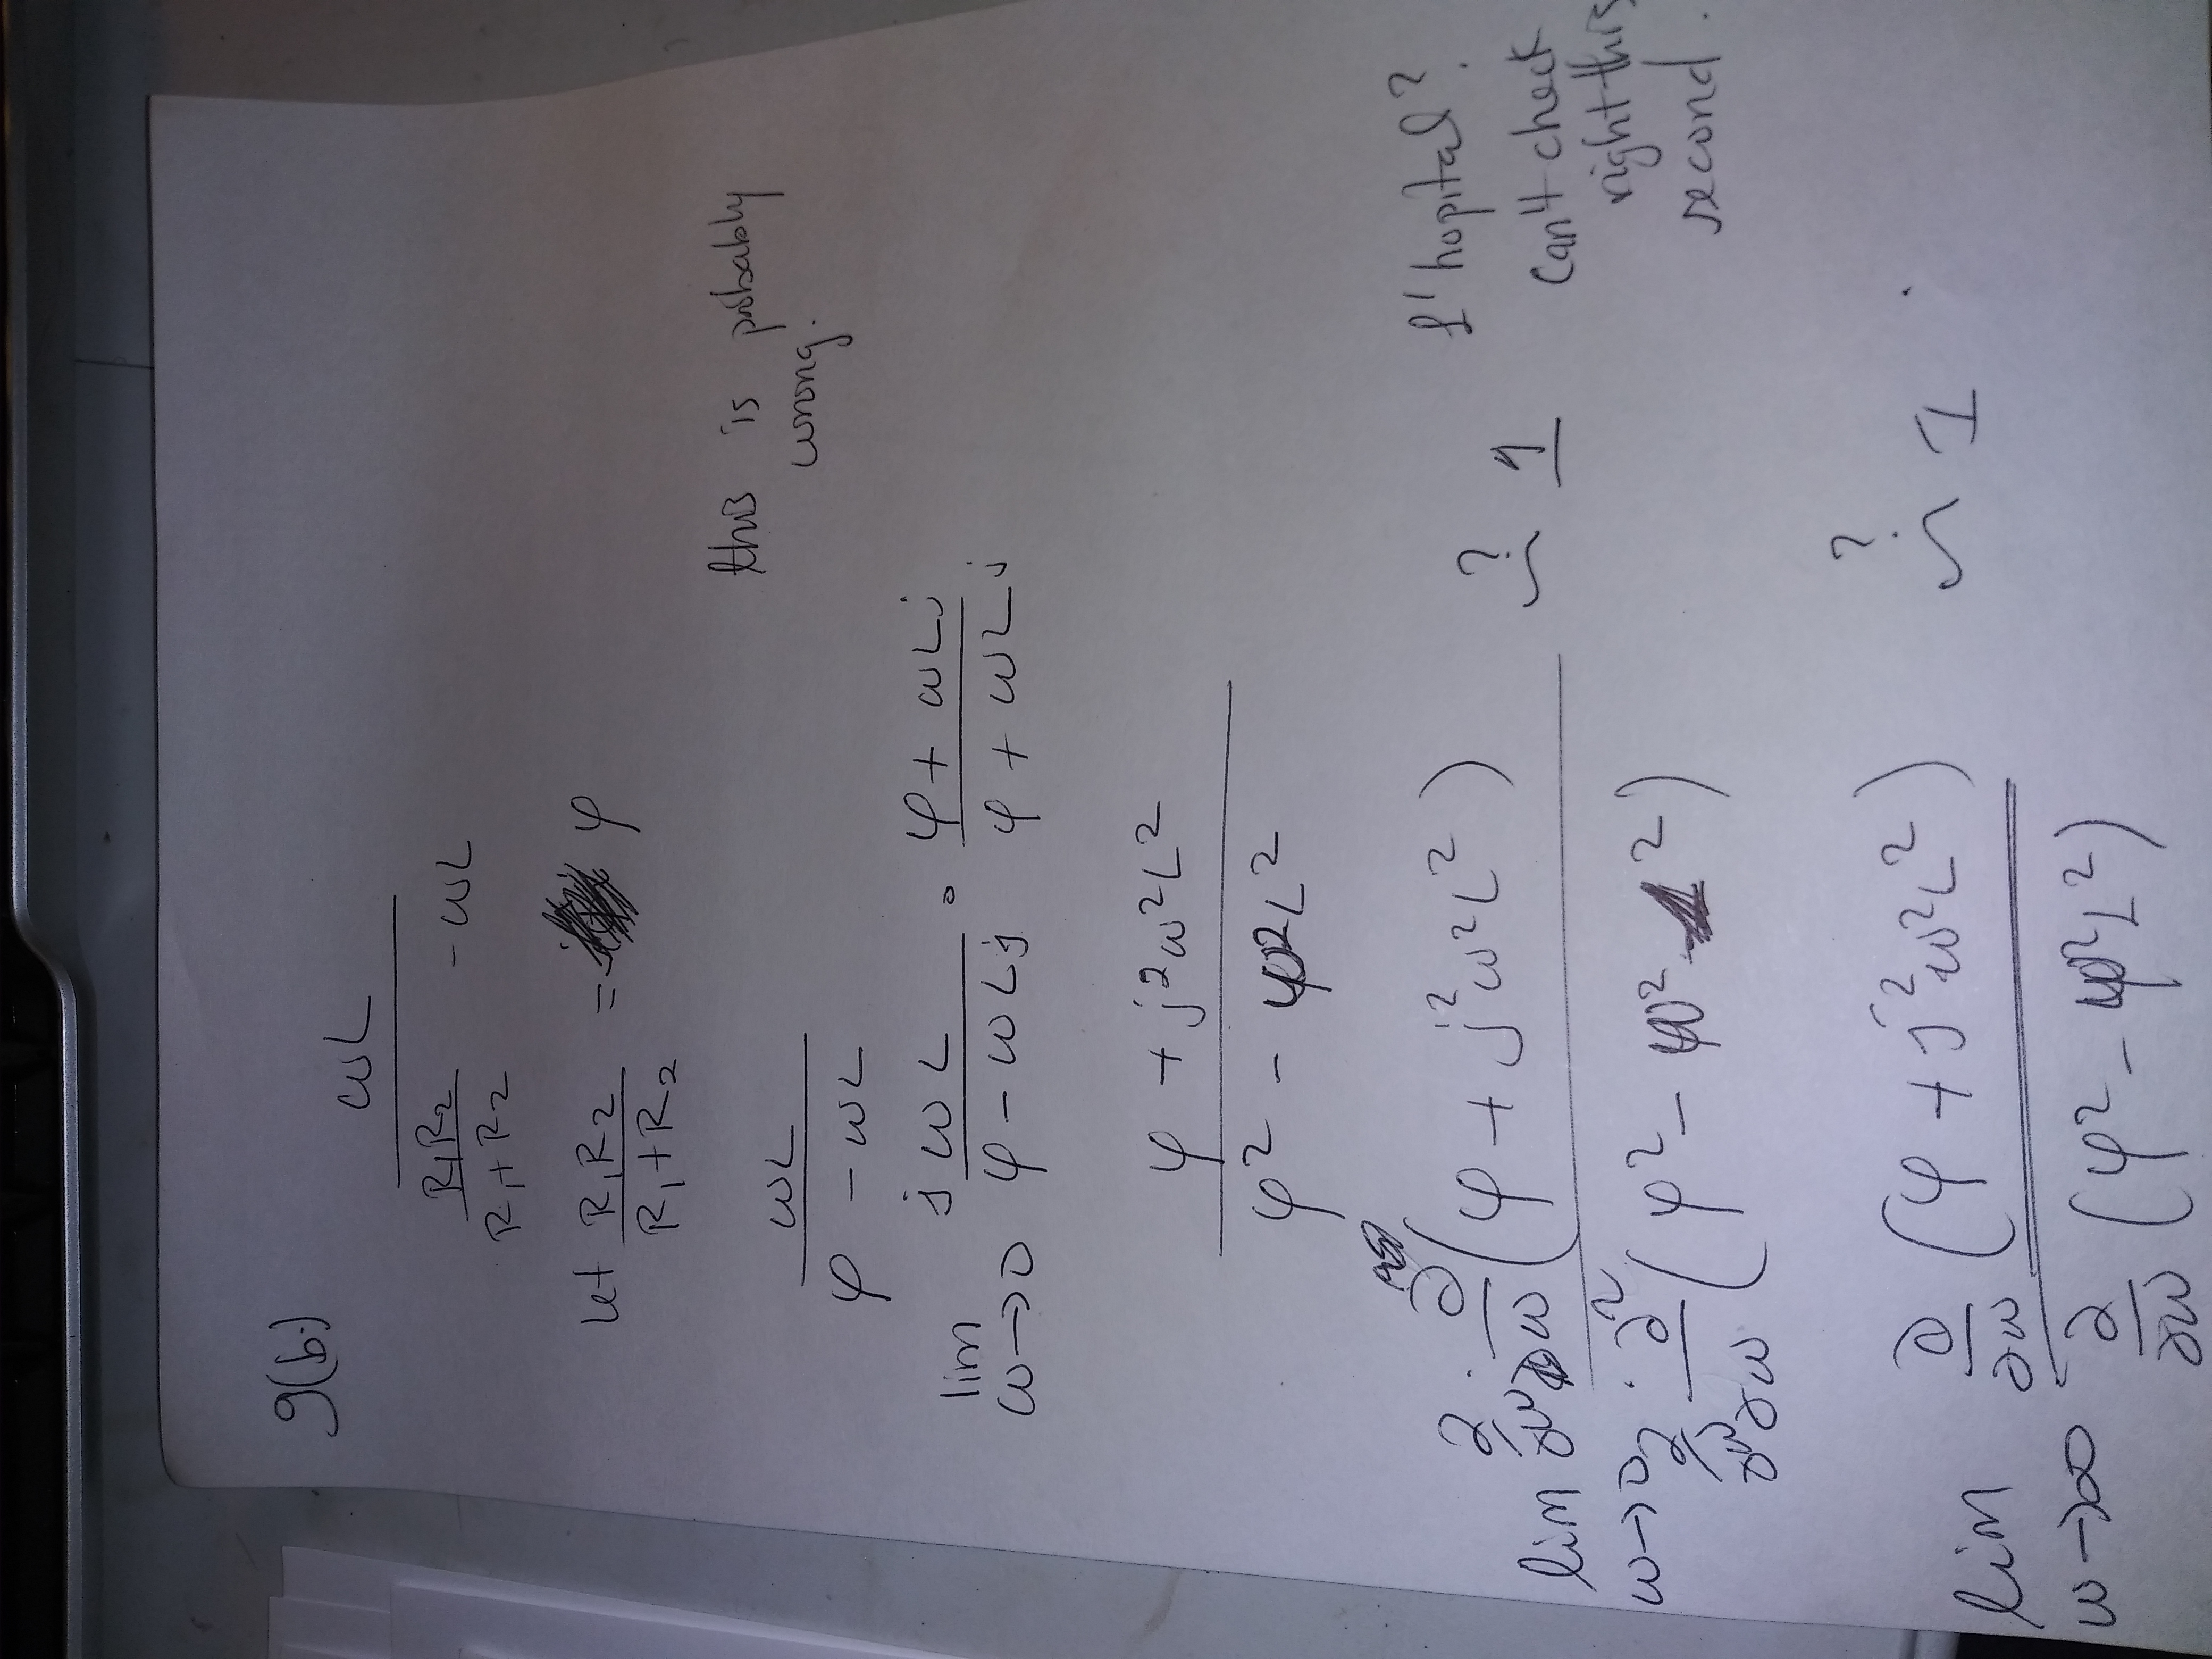 9(b.)
ωL
R₁R₂
R₁+R₂
-ωL
let R₁R₂ = φ
R₁+R₂
this is probably
wrong.
ωL
φ -ωL
lim jωL ∘ φ + ωLj
ω→0 φ-ωLj φ + ωLj
φ + j²ω²L²
φ² - ω²L²
lim ∂/∂ω · ∂/∂ω (φ + j²ω²L²)
ω→0 ∂/∂ω · ∂²/∂ω (φ² - ω² ²)
? ~ 1
L'hopital?
Can't check
right this
second.
lim ∂/∂ω (φ + j²ω²L²)
ω→∞ ∂/∂ω (φ² - ω²L²)
? ~ 1